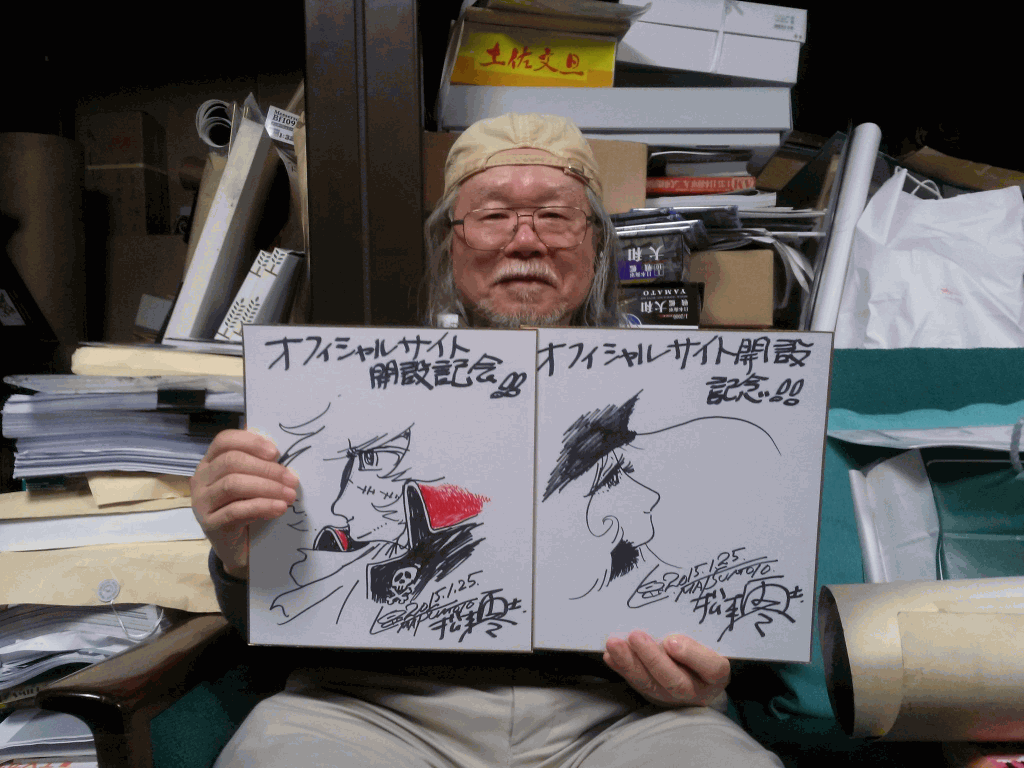 土佐文旦
B1109
大和
YAMATO
大和
オフィシャルサイト
開設記念!!
2015.1.25.
MATSUMOTO.
松本零士
オフィシャルサイト開設
記念!!
2015.1.25.
MATSUMOTO.
松本零士